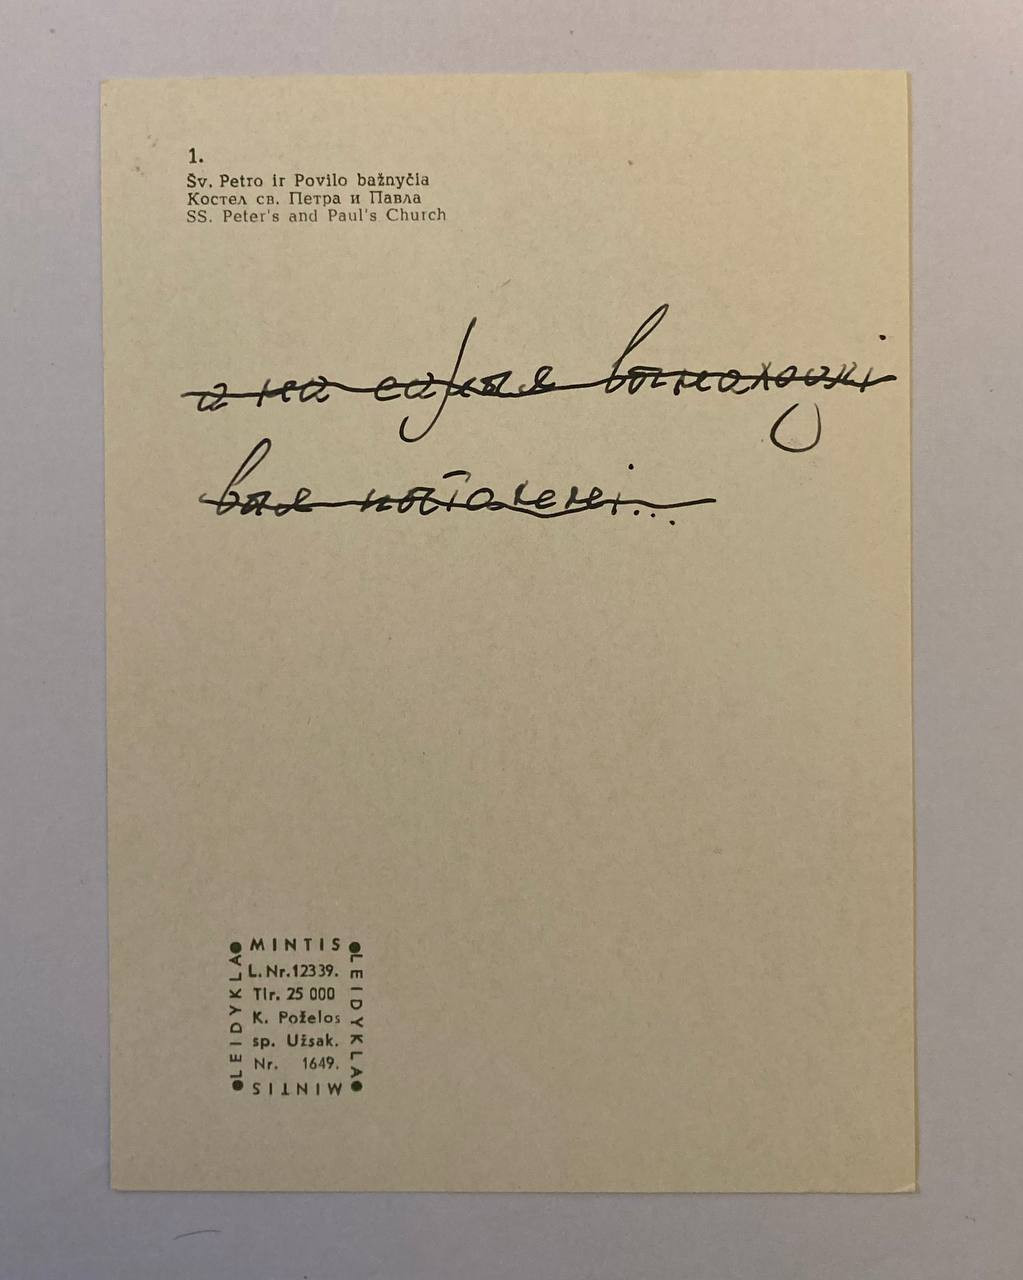 1.
Šv. Petro ir Povilo bažnyčia
Костел св. Петра и Павла
SS. Peter's and Paul's Church
а на
MINTIS
LEIDYKLA
L. Nr. 12339.
Tir. 25 000
K. Poželos
sp. Užsak.
Nr. 1649.
LEIDYKLA
MINTIS